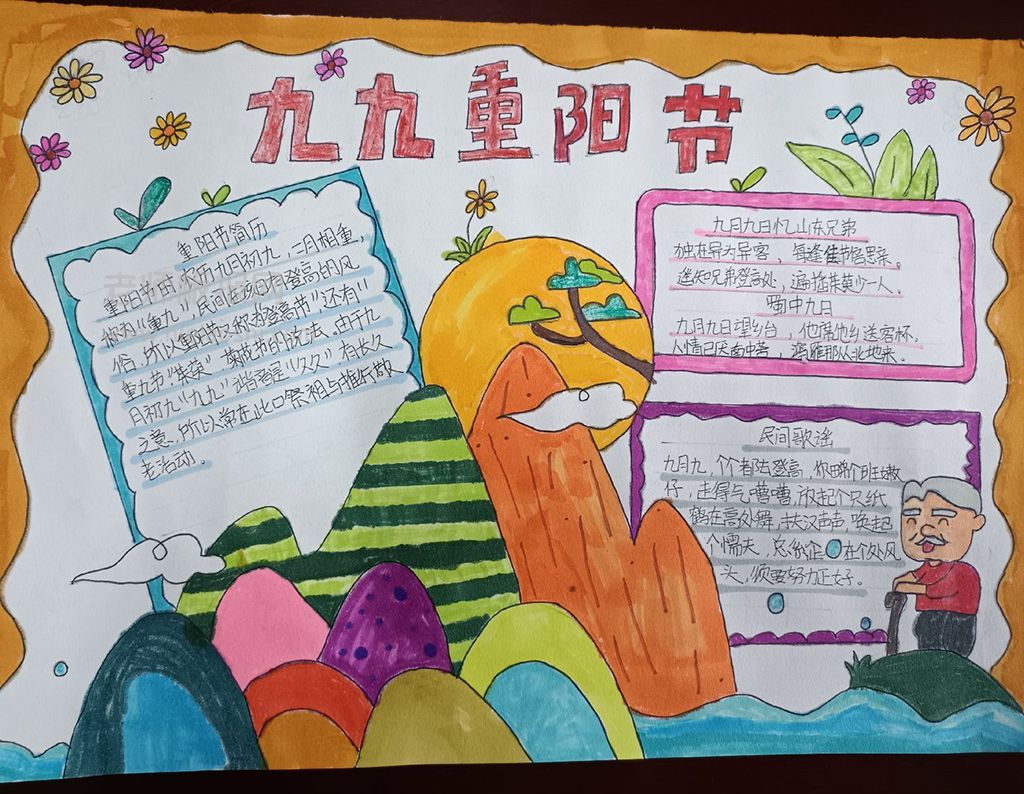 九九重阳节
重阳节简历
重阳节的农历九月初九，二月相重，
称为"重九"，民间在该日有登高的风
俗，所以重阳节又称为登高节"还有"
重九节"茱萸"、菊花节的说法、由于九
月初九"九九"谐音是"久久"有长久
之意、所以常在此日祭祖与推行敬
老活动。
九月九日忆山东兄弟
独在异为异客，每逢佳节倍思亲。
遥知兄弟登高处，遍插茱萸少一人。
蜀中九日
九月九日望乡台，他席他乡送客杯。
人情已厌南中苦，鸿雁那从北地来。
民间歌谣
九月九，个个都去登高，你睇个班嫩
仔，走得气嘈嘈，放起个只纸
鹤在高处舞，扶汉声声唤起
个懦夫，总系企在个处风
头，须要努力正好。